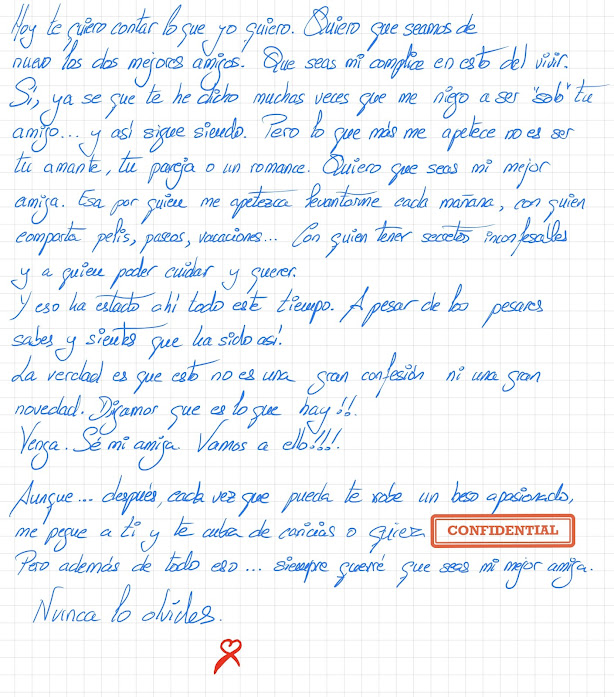 Hoy te quiero contar lo que yo quiero. Quiero que seamos de
nuevo los dos mejores amigos. Que seas mi complice en esto del vivir.
Si, ya se que te he dicho muchas veces que me niego a ser "solo" tu
amigo... y así sigue siendo. Pero lo que más me apetece no es ser
tu amante, tu pareja o un romance. Quiero que seas mi mejor
amiga. Esa por quien me apetezca levantarme cada mañana, con quien
comparta pelis, paseos, vacaciones... Con quien tener secretos inconfesables
y a quien poder cuidar y querer.
Y eso ha estado ahí todo este tiempo. A pesar de los pesares
sabes y sientes que ha sido así.
La verdad es que esto no es una gran confesión ni una gran
novedad. Digamos que es lo que hay!!.
Venga. Sé mi amiga. Vamos a ello!!!.
Aunque... después, cada vez que pueda te robe un beso apasionado,
me pegue a ti y te cubra de caricias o quiera CONFIDENTIAL
Pero además de todo eso... siempre querré que seas mi mejor amiga.
Nunca lo olvides.